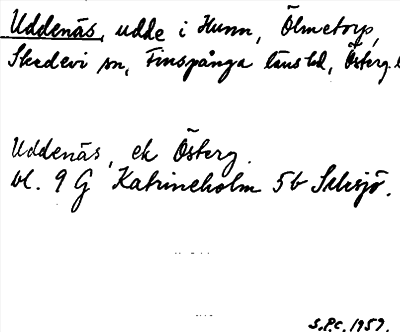 Uddenäs, udde i Hunn, Ölmetorp,
Skedevi sn, Finspånga länshd, Österg.
Uddenäs, ek Österg.
bl. 9 G Katrineholm 5b Selesjö.
S.P.c. 1959.